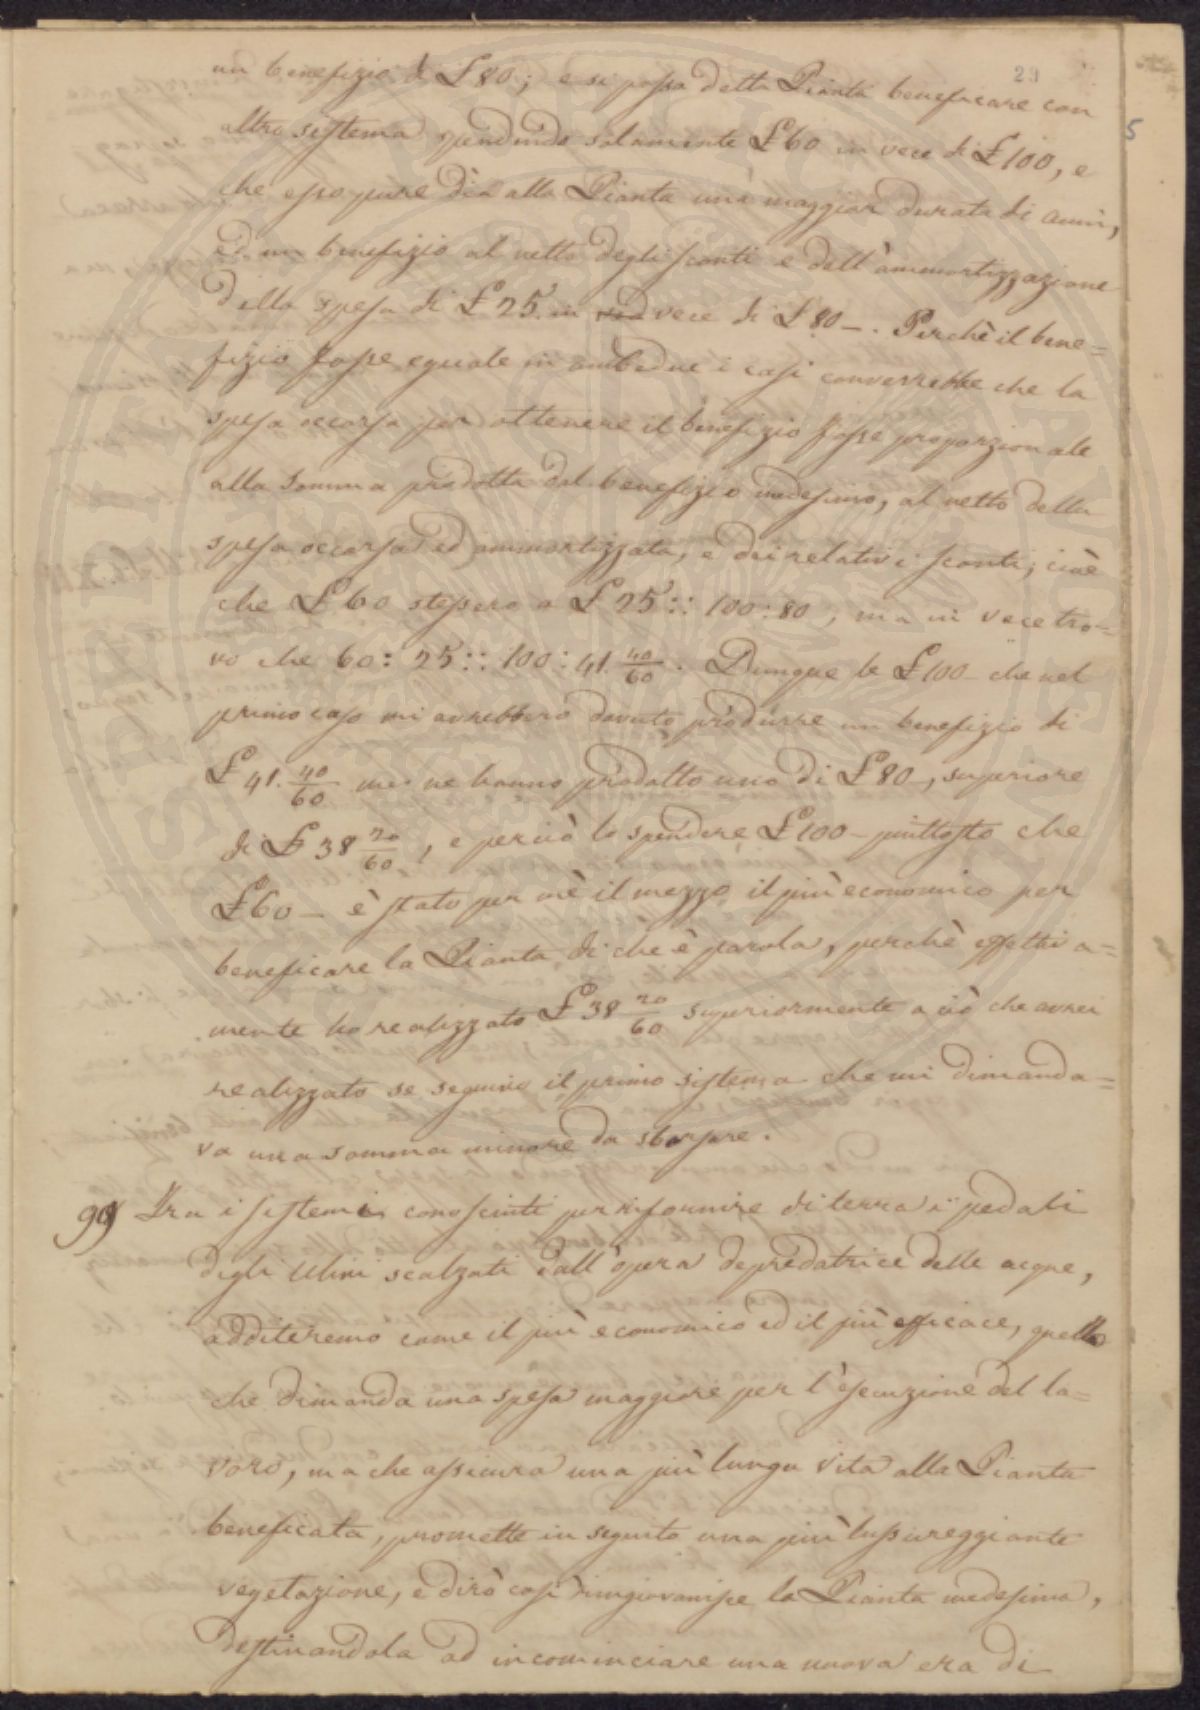 29
5
un benefizio di £ 80; e si possa detta Pianta beneficare con
altro sistema spendendo solamente £ 60 in vece di £ 100, e
che esso pure dia alla Pianta una maggior durata di anni,
ed un benefizio al netto degli sconti e dell'ammortizzazione
della spesa di £ 25. in vece di £ 80 -. Perchè il bene=
fizio fosse eguale in ambedue i casi converrebbe che la
spesa occorsa per ottenere il benefizio fosse proporzionale
alla somma prodotta dal benefizio medesimo, al netto della
spesa occorsa ed ammortizzata, e dei relativi sconti; cioè
che £ 60 stessero a £ 25 :: 100 : 80, ma in vece tro=
vo che 60 : 25 :: 100 : 41. 40/60. Dunque le £ 100 - che nel
primo caso mi avrebbero dovuto produrre un benefizio di
£ 41. 40/60 me ne hanno prodotto uno di £ 80 -, superiore
di £ 38 20/60, e perciò lo spendere £ 100 - piuttosto che
£ 60 - è stato per mè il mezzo il più economico per
beneficare la Pianta di che è parola, perchè effettiva=
mente ho realizzato £ 38 20/60 superiormente a ciò che avrei
realizzato se seguivo il primo sistema che mi dimanda=
va una somma minore da sborsare.
99 Fra i sistemi conosciuti per rifornire di terra i pedali
degli Ulivi scalzati dall'opera depredatrice delle acque,
additeremo come il più economico ed il più efficace, quello
che dimanda una spesa maggiore per l'esecuzione del la=
voro, ma che assicura una più lunga vita alla Pianta
beneficata, promette in seguito una più lussureggiante
vegetazione, e dirò così ringiovanisce la Pianta medesima,
destinandola ad incominciare una nuova era di
SPIRITVS